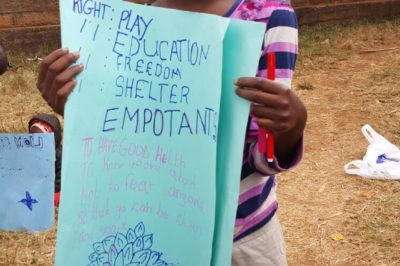 RIGHT: PLAY
11 : EDUCATION
11 : FREEDOM
11 : SHELTER
EMPOTANTS
TO HAVE GOOD Health
TO Know more about
Not to fear anyone
so that yo can be